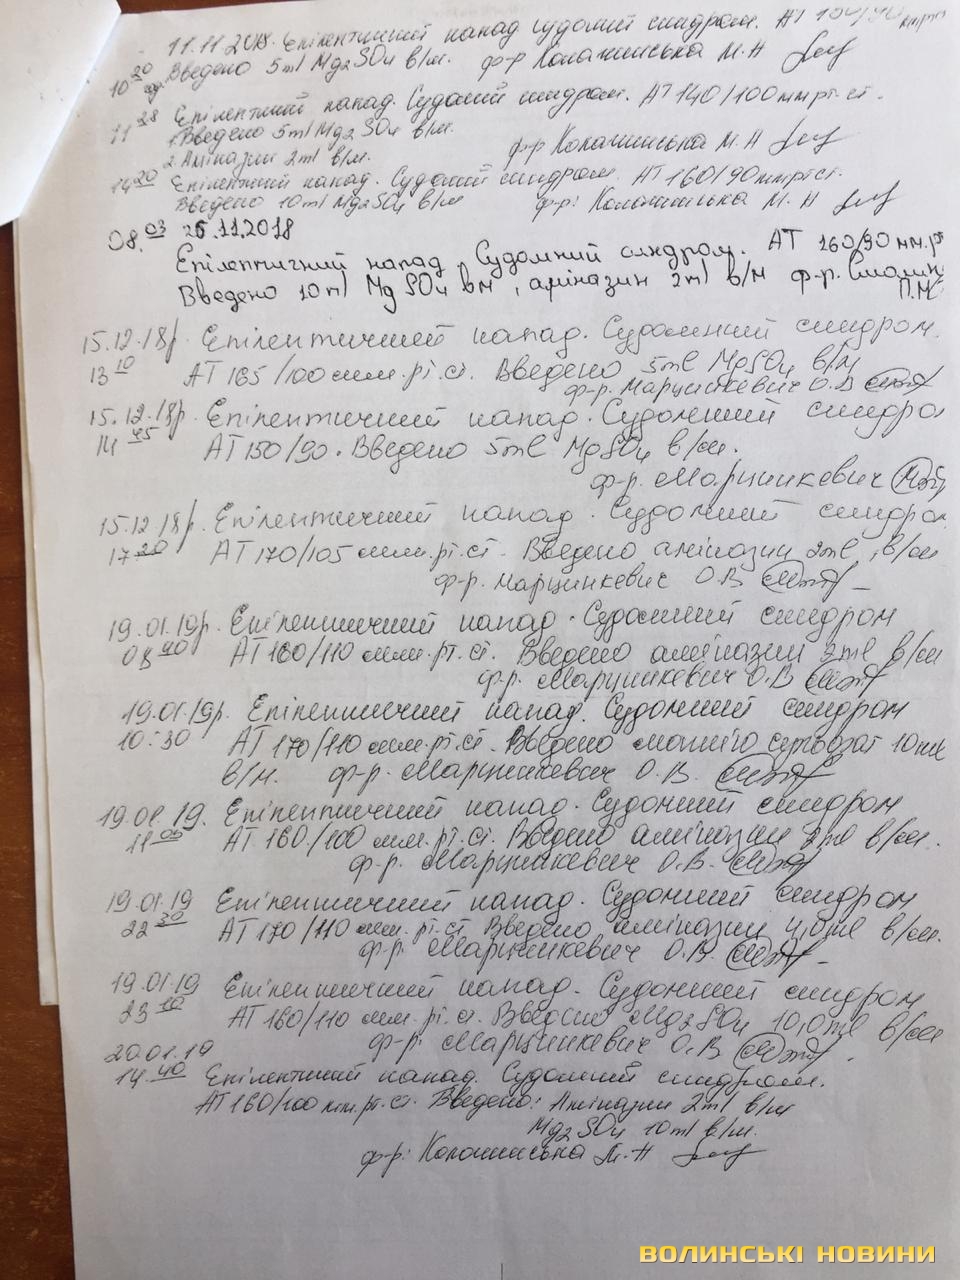 11.11.2018. Епілептичний напад судомний синдром. АТ 150/90 мм.рт.ст
10 20 год Введено 5ml Mg2SO4 в/м. ф-р Колачинська М.Н
11 28 Епілептичний напад. Судомний синдром. АТ 140/100 мм рт.ст.
1. Введено 5ml Mg2SO4 в/м.
2. Аміназин 2ml в/м. ф-р Колачинська М.Н
14 20 Епілептичний напад. Судомний синдром. АТ 160/90 мм рт ст.
Введено 10ml Mg2SO4 в/м ф-р: Колачинська М.Н
08. 03 25.11.2018
Епілептичний напад. Судомний синдром. АТ 160/90 мм.рт
Введено 10ml MgSO4 вм, аміназин 2ml в/м ф-р.
П.М
15.12.18р. Епілептичний напад. Судомний синдром.
13 10 АТ 165/100 мм.рт.ст. Введено 5ml MgSO4 в/м
ф-р. Марцинкевич О.В
15.12.18р. Епілептичний напад. Судомний синдром
14 45 АТ 150/90. Введено 5ml MgSO4 в/м.
ф-р. Марцинкевич
15.12.18р. Епілептичний напад. Судомний синдром.
17 20 АТ 170/105 мм.рт.ст. Введено аміназин 2ml, в/м
ф-р. Марцинкевич О.В
19.01.19р. Епілептичний напад. Судомний синдром
08 40 АТ 160/110 мм.рт.ст. Введено аміназин 2ml в/м
ф-р. Марцинкевич О.В
19.01.19р. Епілептичний напад. Судомний синдром
10:30 АТ 170/110 мм.рт.ст. Введено магнію сульфат 10ml
в/м. ф-р. Марцинкевич О.В.
19.01.19. Епілептичний напад. Судомний синдром
11 05 АТ 160/100 мм.рт.ст. Введено аміназин 2ml в/м.
ф-р. Марцинкевич О.В.
19.01.19 Епілептичний напад. Судомний синдром
22 30 АТ 170/110 мм.рт.ст Введено аміназин 4,0ml в/м.
ф-р. Марцинкевич О.В.
19.01.19 Епілептичний напад. Судомний синдром
23 10 АТ 160/110 мм.рт.ст. Введено Mg2SO4 10,0ml в/м
ф-р. Марцинкевич О.В
20.01.19
14 40 Епілептичний напад. Судомний синдром.
АТ 160/100 мм.рт.ст. Введено: Аміназин 2ml в/м
Mg2SO4 10ml в/м.
ф-р: Колачинська М.Н
ВОЛИНСЬКІ НОВИНИ